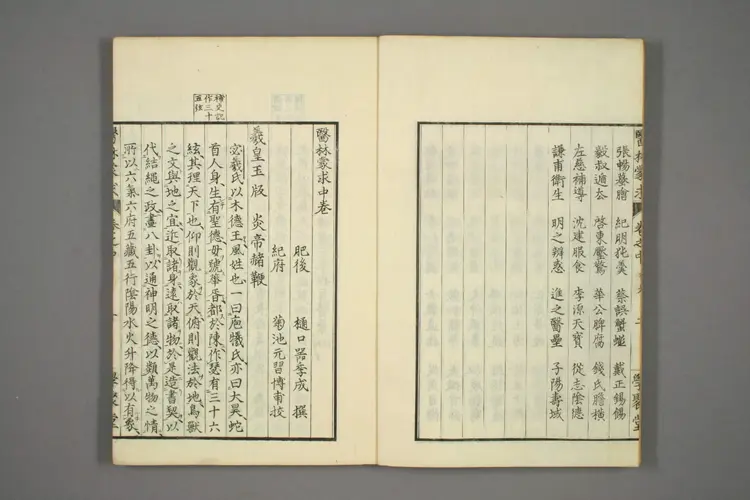 張暢蟇膾　紀朋狂羹　蔡誤蟹蟚　戴正錫錫
毅叔遁去　啓東壓驚　華公脾腐　錢氏膽橫
左慈補導　沈建服食　李源天寶　從志陰德
謙甫衛生　明之辨惑　進之醫壘　子陽壽域
醫林蒙求　卷之中　二　學聚堂
醫林蒙求中卷
肥後　樋口器季成　撰
紀府　菊池元習博甫校
羲皇玉版　炎帝赭鞭
宓羲氏以木德王風姓也一曰庖犧氏亦曰大昊蛇
首人身生有聖德母號華胥都於陳作瑟有三十六
絃其理天下也仰則觀象於天俯則觀法於地鳥獸
之文與地之宜近取諸身遠取諸物於是造書契以
代結繩之政畫八卦以通神明之德以類萬物之情
所以六氣六府五藏五行陰陽水火升降得以有象
稗史記
作三十
五絃